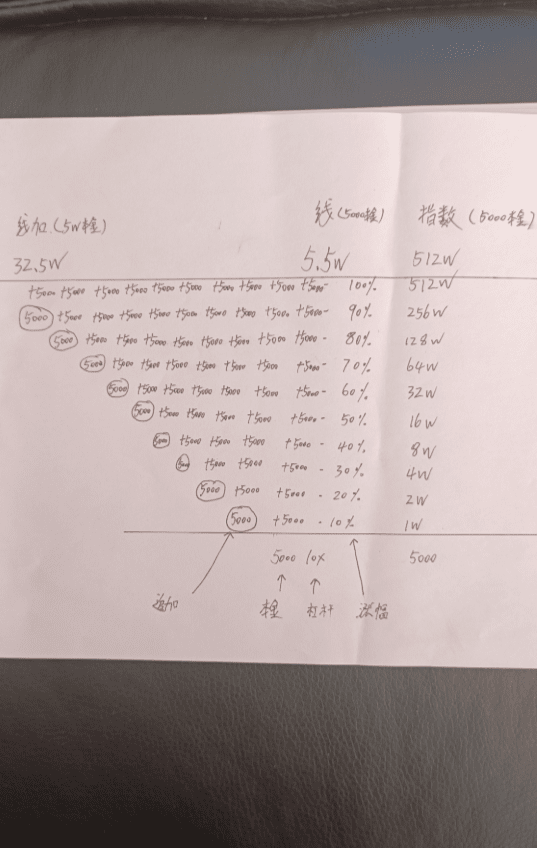 线加(5W本金) 线(5000本金) 指数(5000本金)
32.5W 5.5W 512W
+5000 +5000 +5000 +5000 +5000 +5000 +5000 +5000 +5000 +5000- 100% 512W
5000 +5000 +5000 +5000 +5000 +5000 +5000 +5000 +5000 +5000- 90% 256W
5000 +5000 +5000 +5000 +5000 +5000 +5000 +5000 +5000 - 80% 128W
5000 +5000 +5000 +5000 +5000 +5000 +5000 +5000- 70% 64W
5000 +5000 +5000 +5000 +5000 +5000 +5000- 60% 32W
5000 +5000 +5000 +5000 +5000 +5000- 50% 16W
5000 +5000 +5000 +5000 +5000 - 40% 8W
5000 +5000 +5000 +5000 - 30% 4W
5000 +5000 +5000 - 20% 2W
5000 +5000 - 10% 1W
5000 10x 5000
追加 本金 杠杆 涨幅